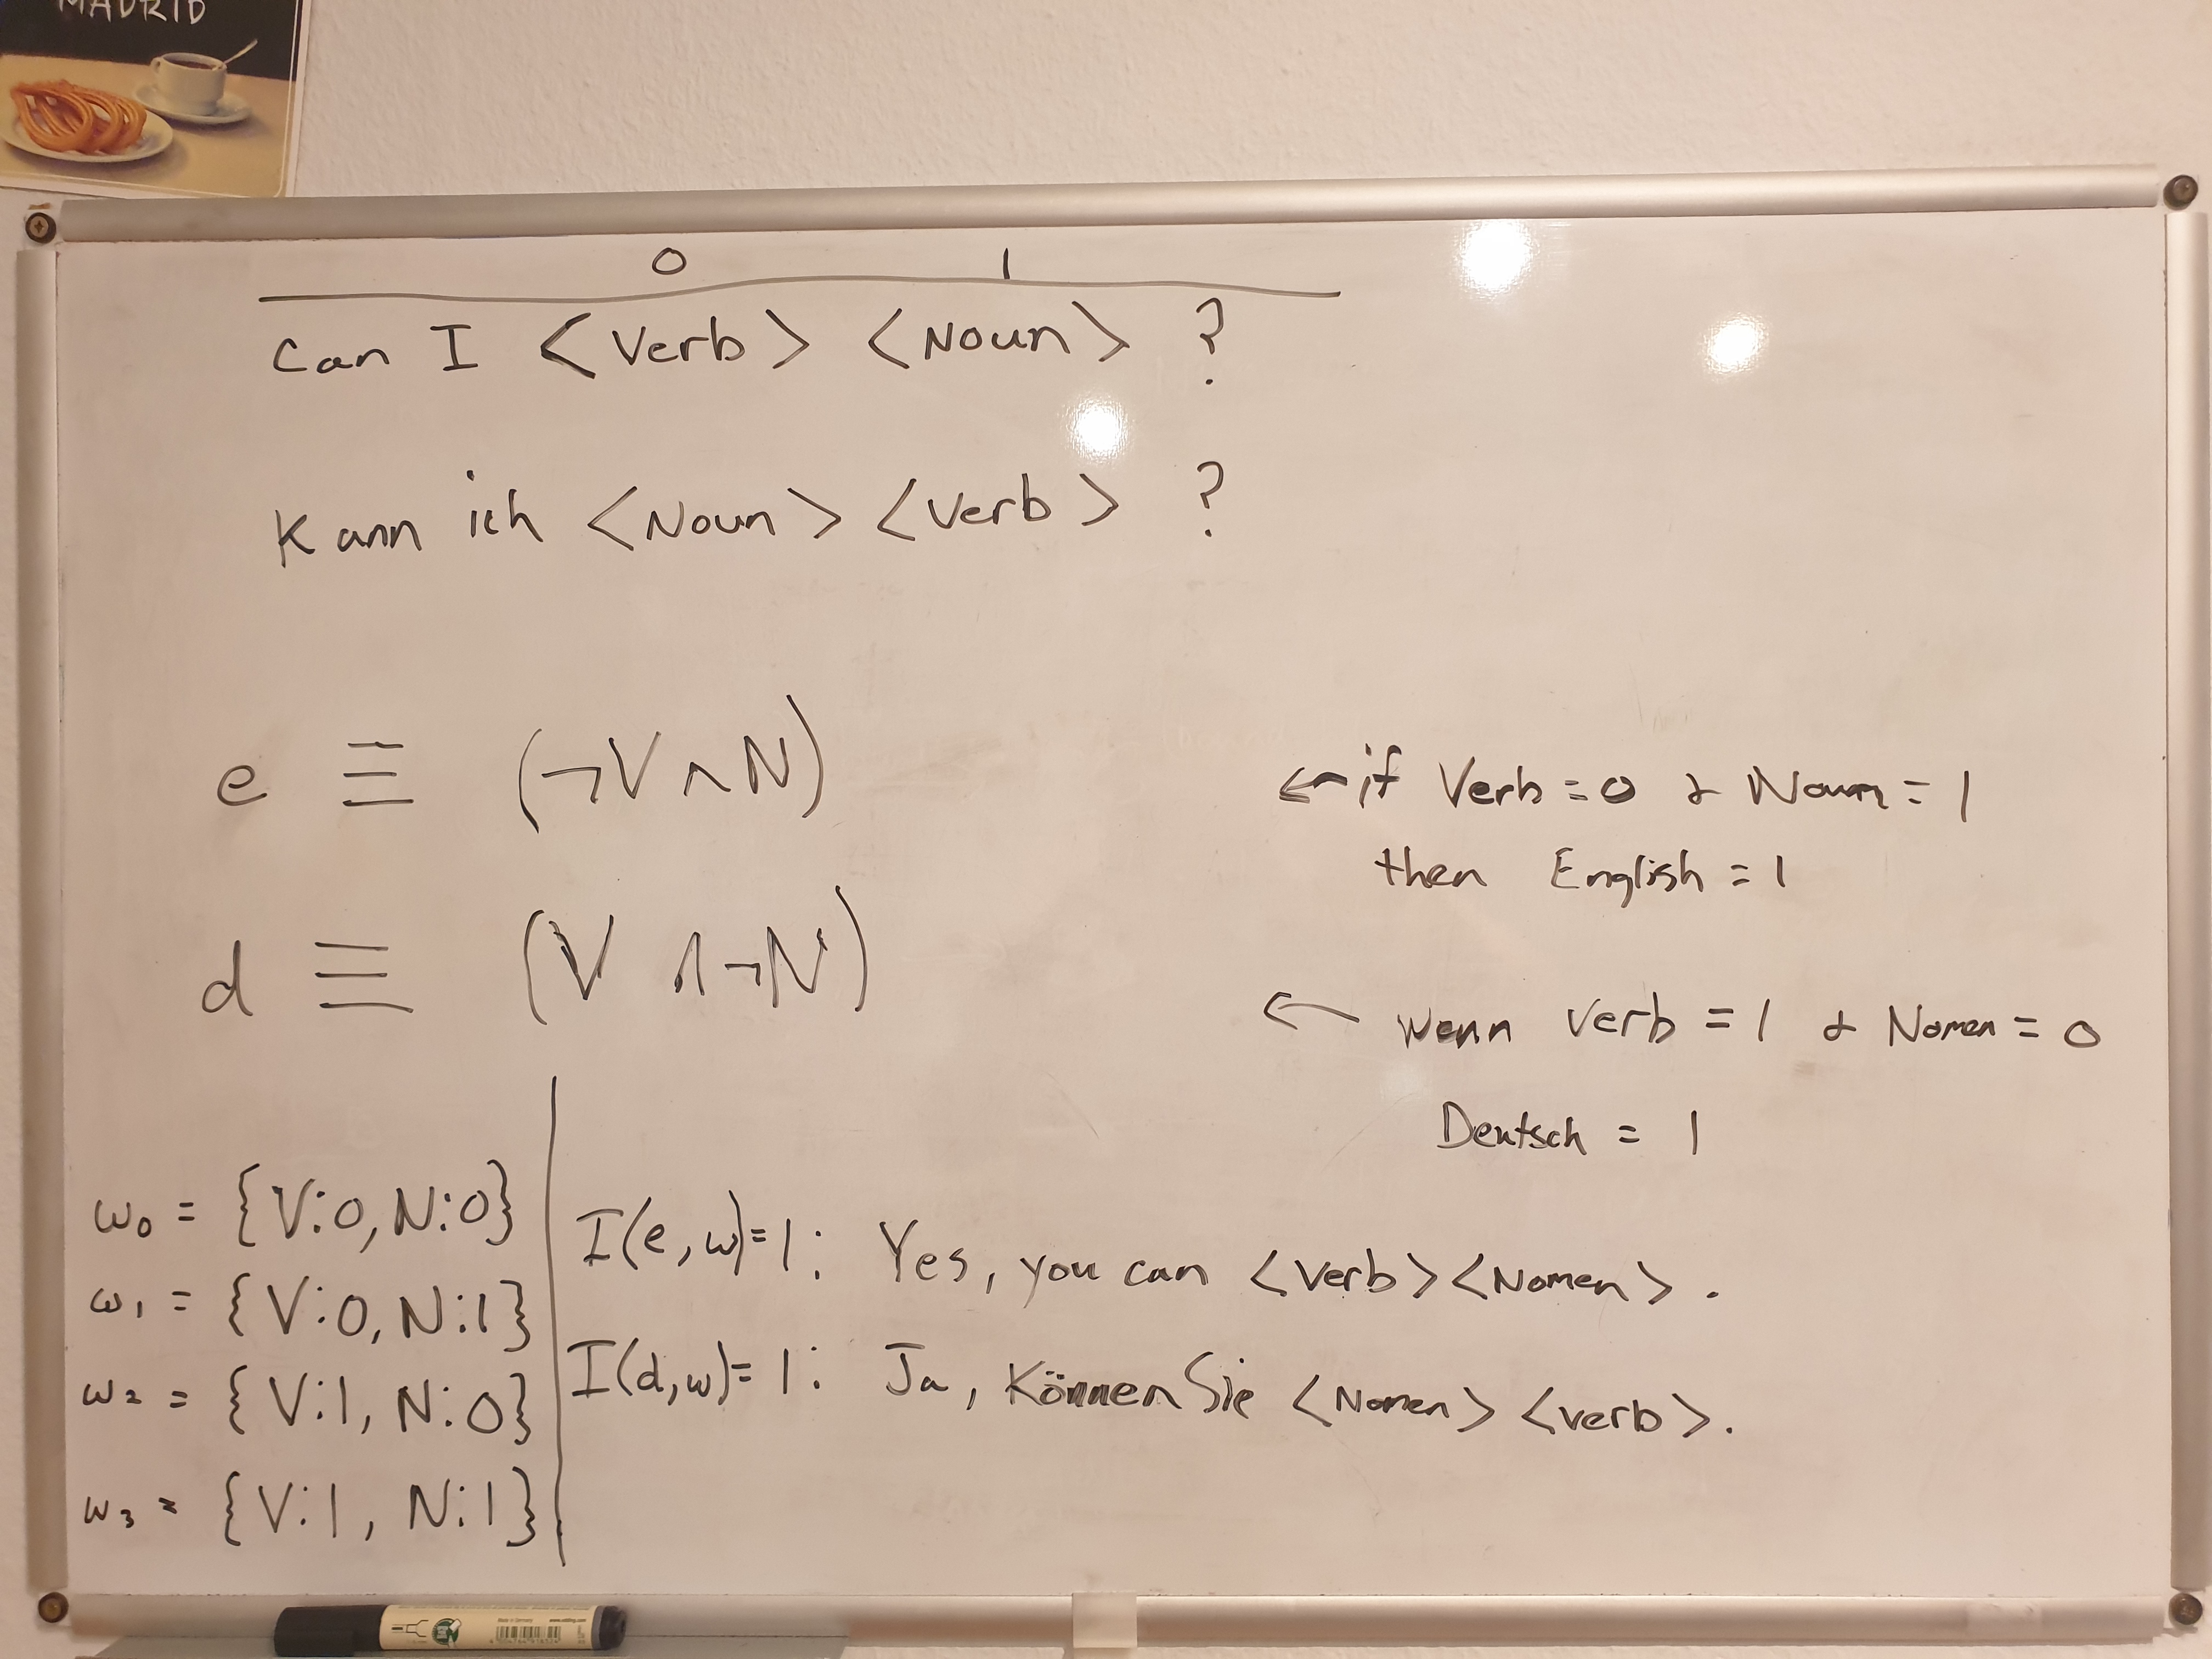 MADRID
0 1
Can I <Verb> <Noun> ?
Kann ich <Noun> <Verb> ?
e ≡ (¬V ∧ N)
← if Verb = 0 & Noun = 1
then English = 1
d ≡ (V ∧ ¬N)
← wenn Verb = 1 & Nomen = 0
Deutsch = 1
ω0 = {V:0, N:0}
ω1 = {V:0, N:1}
ω2 = {V:1, N:0}
ω3 = {V:1, N:1}
I(e, ω) = 1: Yes, you can <Verb> <Nomen>.
I(d, ω) = 1: Ja, Können Sie <Nomen> <Verb>.